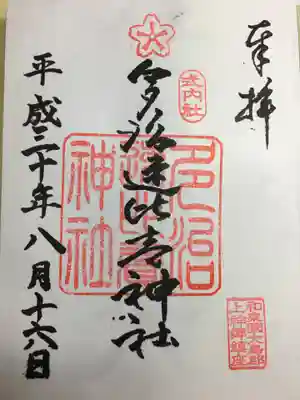 奉拝
式内社
多治速比売神社
多治速比賣神社
平成三十年八月十六日
和泉國大鳥郡
上神郷鎮座